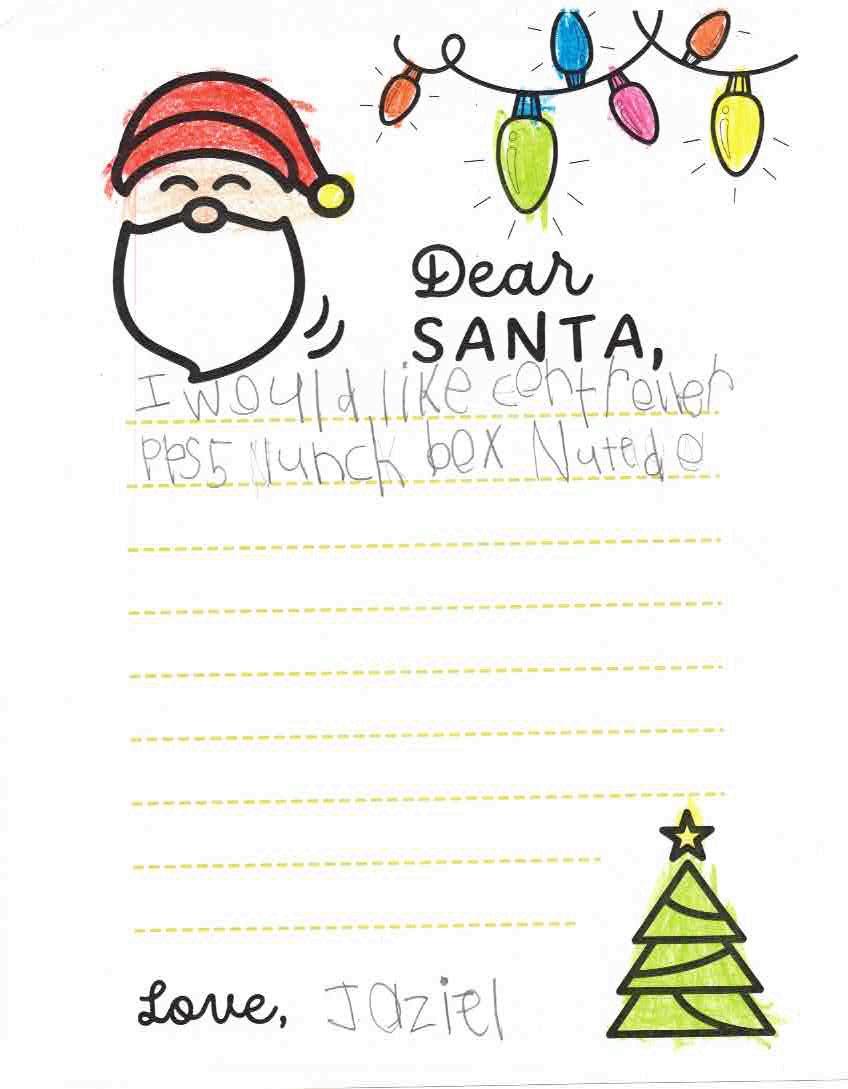 Dear
SANTA,
I would like contreller
PPS5 lunch box
Love, Jaziel